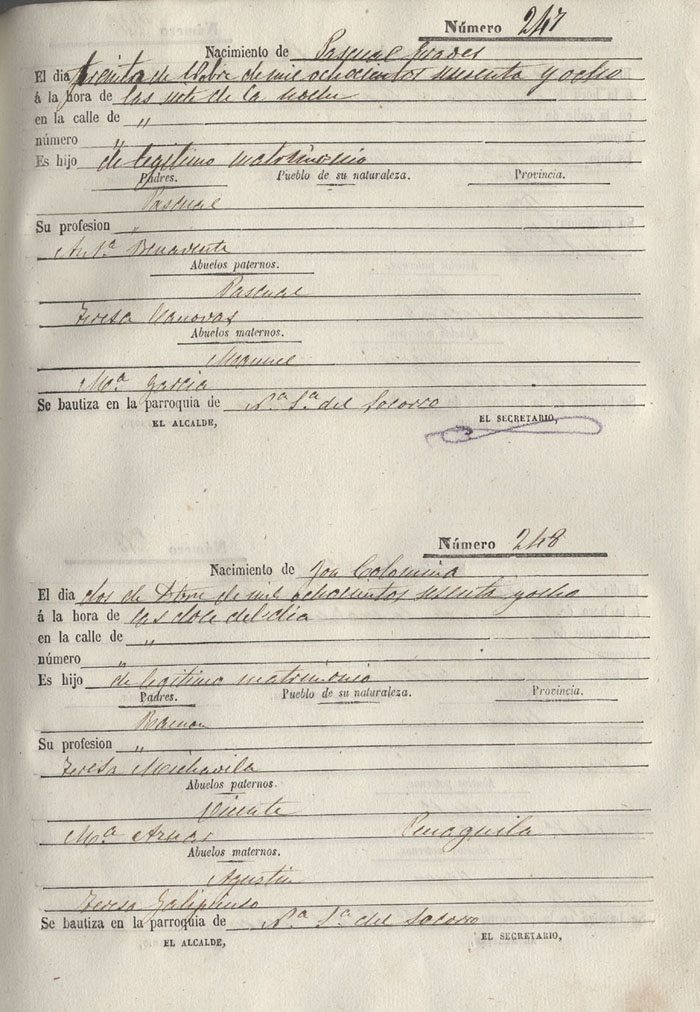 Número 247
Nacimiento de Pascual
El dia treinta de de mil ochocientos sesenta y ocho
á la hora de las siete de la noche
en la calle de "
número "
Es hijo de legitimo matrimonio
Padres. Pueblo de su naturaleza. Provincia.
Pascual
Su profesion "
Ant.ª Benavente
Abuelos paternos.
Pascual
Teresa Canovas
Abuelos maternos.
Manuel
M.ª Garcia
Se bautiza en la parroquia de N.ª S.ª del Socorro
EL ALCALDE, EL SECRETARIO,
Número 248
Nacimiento de Colomina
El dia dos de Dbre de mil ochocientos sesenta y ocho
á la hora de las doce del dia
en la calle de "
número "
Es hijo de legitimo matrimonio
Padres. Pueblo de su naturaleza. Provincia.
Ramon
Su profesion "
Teresa Michavila
Abuelos paternos.
Vicente
M.ª Aznar Penaguila
Abuelos maternos.
Agustin
Teresa
Se bautiza en la parroquia de N.ª S.ª del Socorro
EL ALCALDE, EL SECRETARIO,